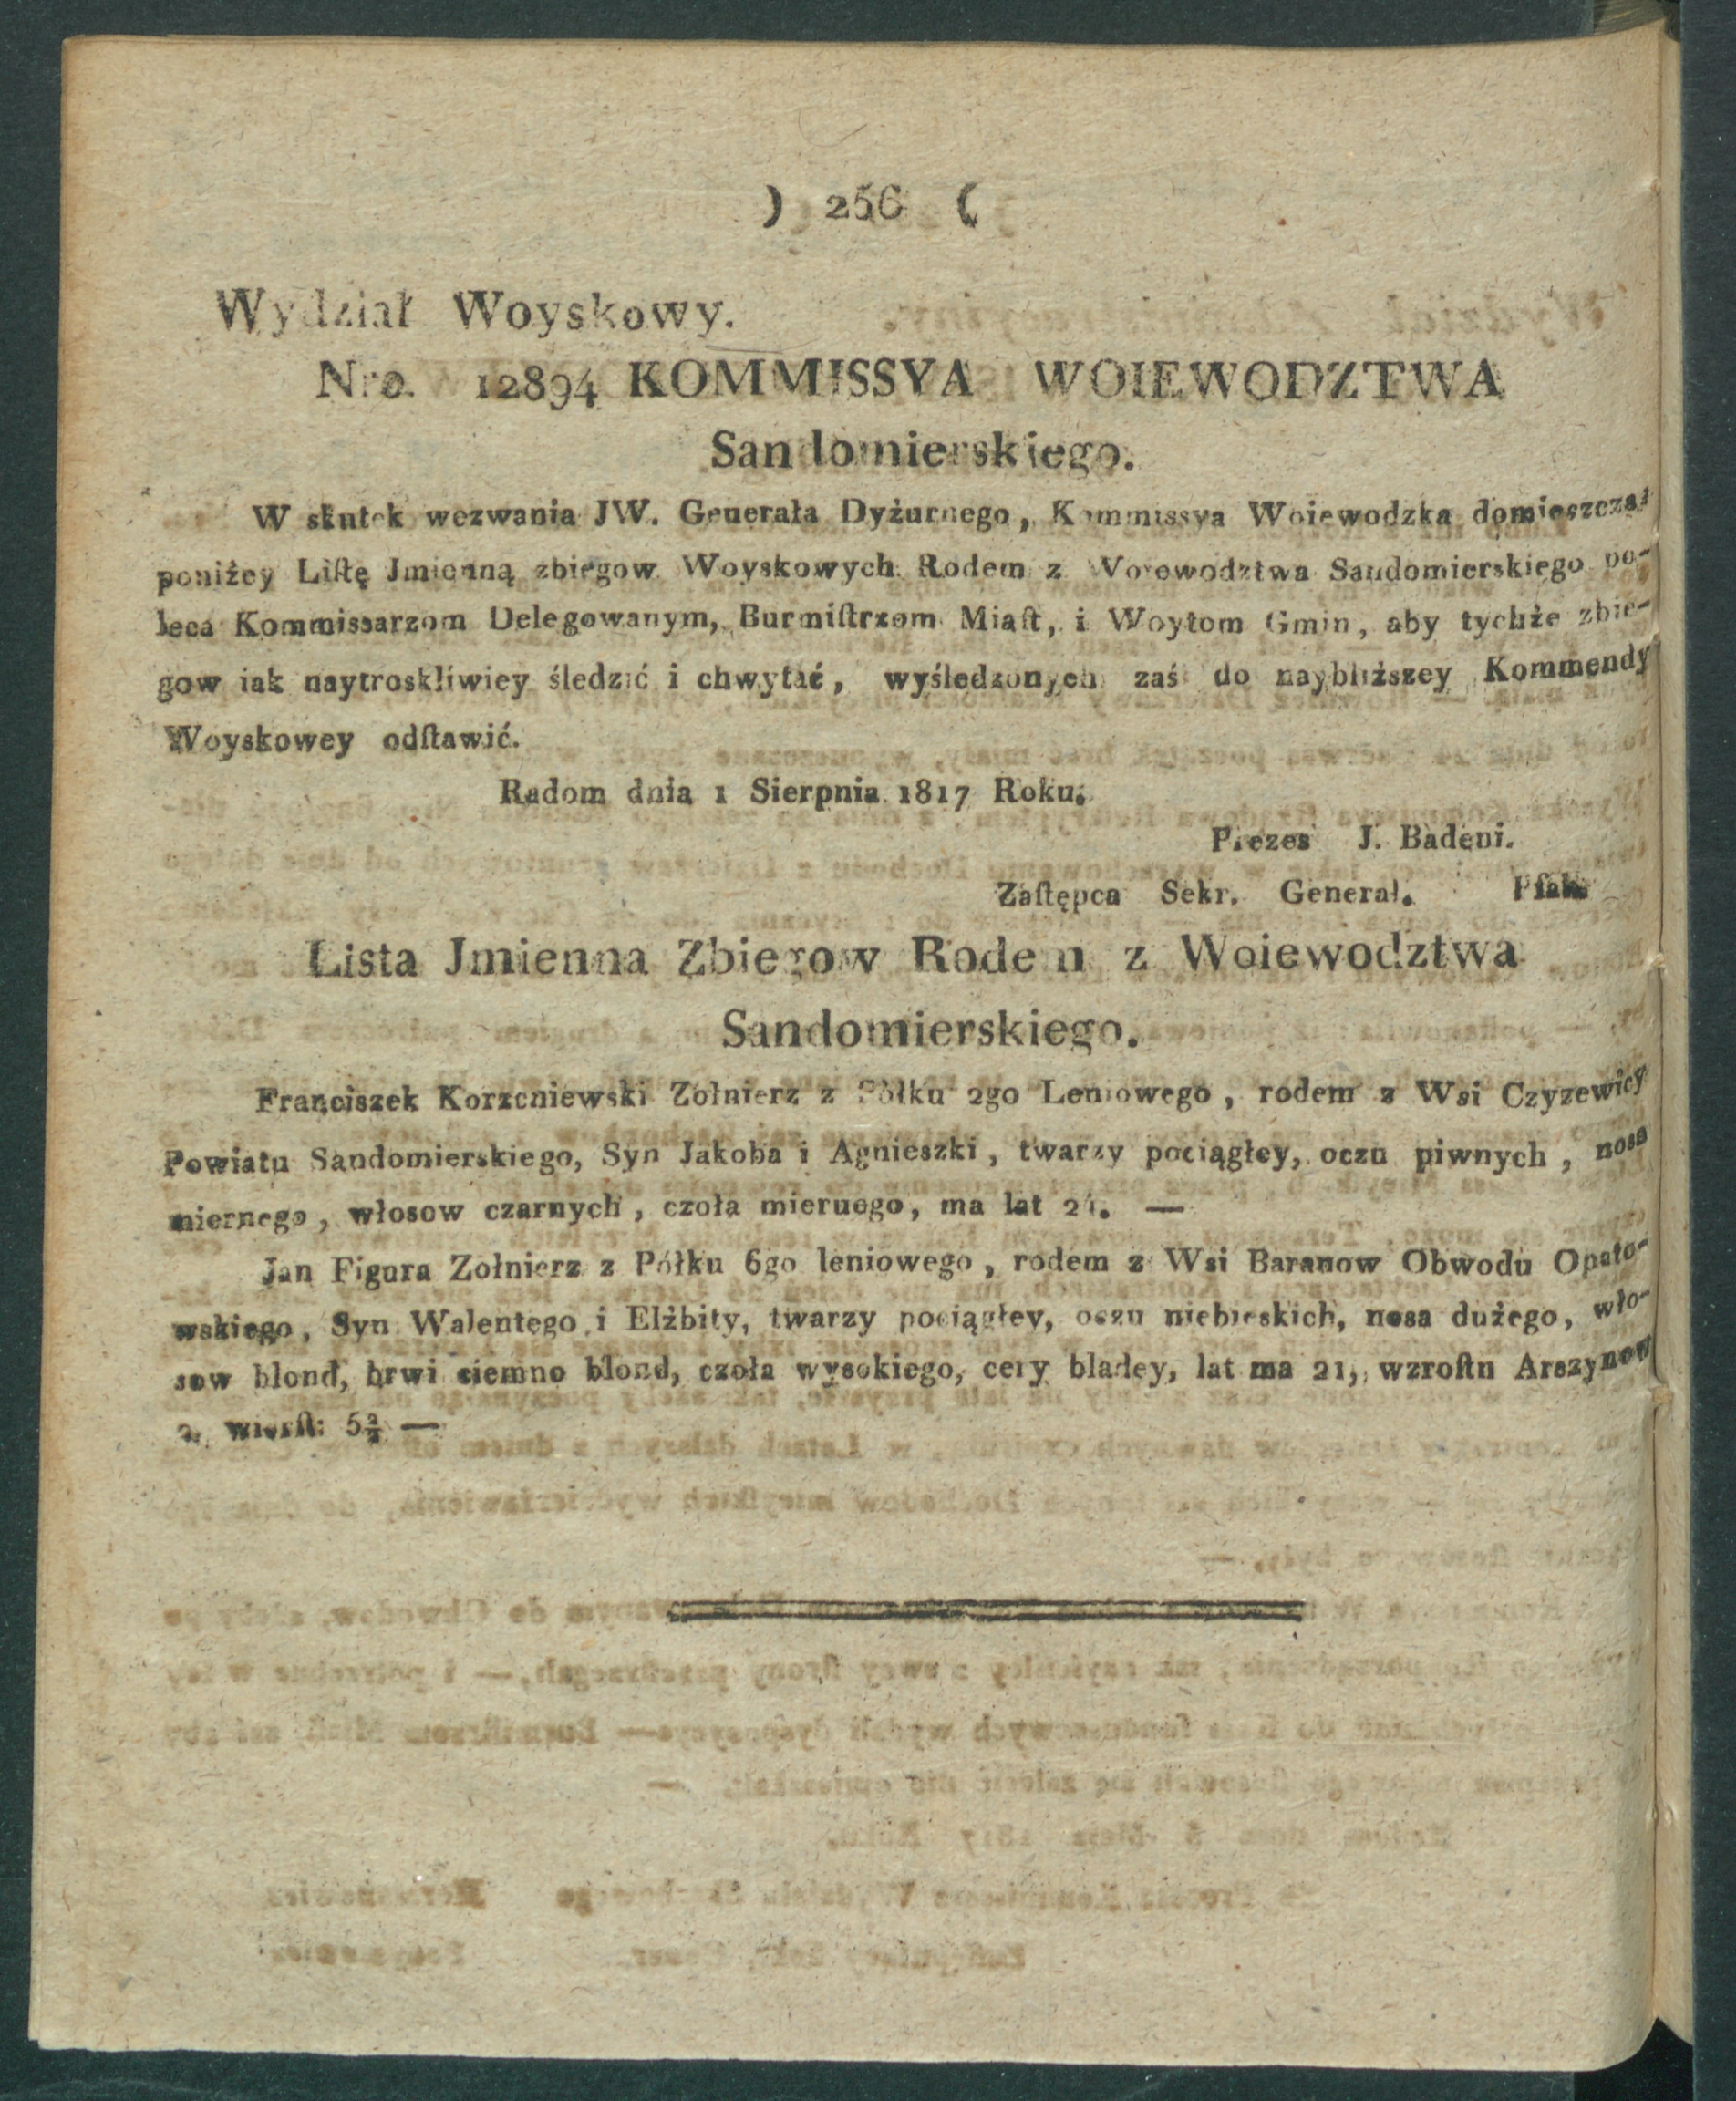 ) 256 (
Wydział Woyskowy.
Nro. 12894 KOMMISSYA WOIEWODZTWA
Sandomierskiego.
W skutek wezwania JW. Generała Dyżurnego, Kommissya Woiewodzka domieszczał
poniżey Liſtę Jmienną zbiegow Woyskowych Rodem z Woiewodztwa Sandomierskiego po-
leca Kommissarzom Delegowanym, Burmiſtrzom Miaſt, i Woytom Gmin, aby tychże zbie-
gow iak naytroskliwiey śledzić i chwytać, wyśledzonych zaś do naybliższey Kommendy
Woyskowey odſtawić.
Radom dnia 1 Sierpnia 1817 Roku.
Prezes J. Badeni.
Zaſtępca Sekr. General.
Lista Jmienna Zbiegow Rodem z Woiewodztwa
Sandomierskiego.
Franciszek Korzeniewski Zołnierz z Półku 2go Leniowego, rodem z Wsi Czyzewicy
Powiatu Sandomierskiego, Syn Jakoba i Agnieszki, twarzy pociągłey, oczu piwnych, nosa
miernego, włosow czarnych, czoła miernego, ma lat —
Jan Figura Zołnierz z Półku 6go leniowego, rodem z Wsi Baranow Obwodu Opato-
wskiego, Syn Walentego i Elżbity, twarzy pociągłey, oczu niebieskich, nosa dużego, wło-
sow blond, brwi ciemno blond, czoła wysokiego, cery bladey, lat ma 21, wzroſtu Arszynow
2. wierſt: —